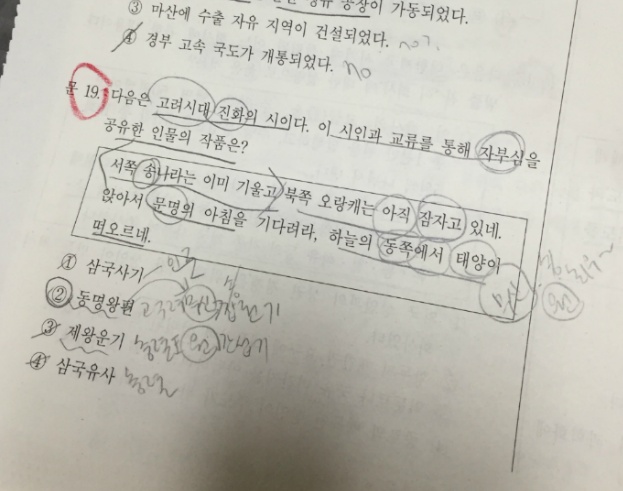 공장이 가동되었다.
③ 마산에 수출 자유 지역이 건설되었다. no?
④ 경부 고속 국도가 개통되었다. no
문 19. 다음은 고려시대 진화의 시이다. 이 시인과 교류를 통해 자부심을
공유한 인물의 작품은?
서쪽 송나라는 이미 기울고 북쪽 오랑캐는 아직 잠자고 있네.
앉아서 문명의 아침을 기다려라, 하늘의 동쪽에서 태양이
떠오르네.
① 삼국사기
② 동명왕편
③ 제왕운기
④ 삼국유사